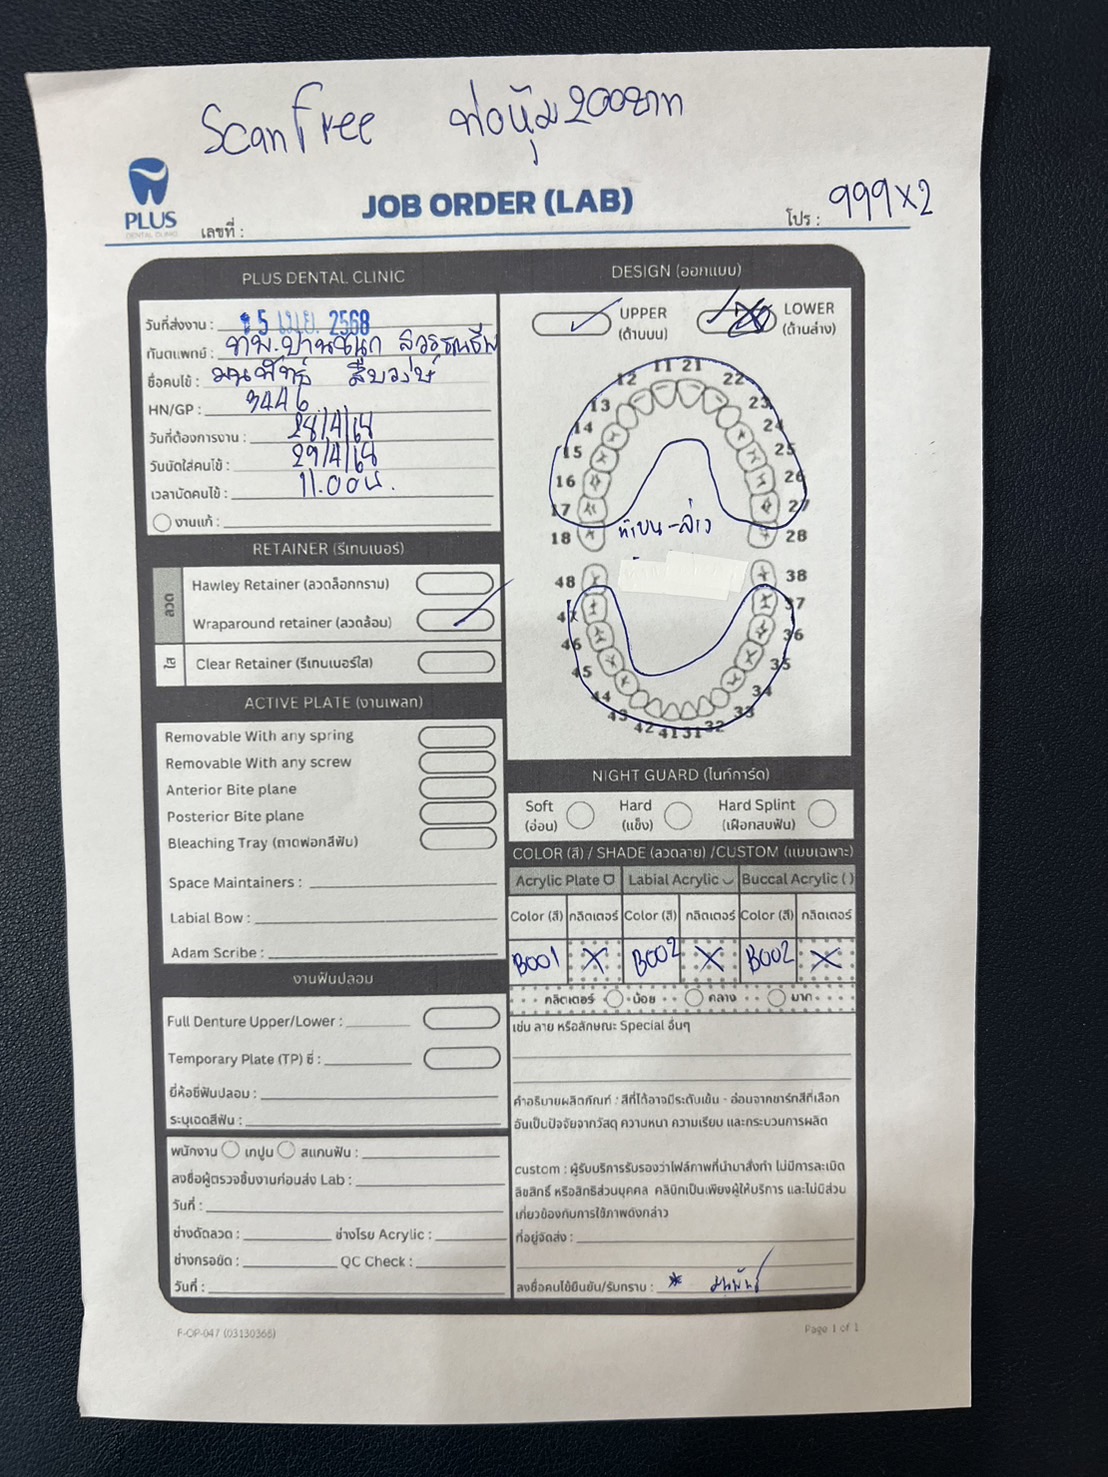 Scan Free ท่อหุ้ม 200บาท
PLUS
DENTAL CLINIC
JOB ORDER (LAB)
เลขที่ :
โปร : 999x2
PLUS DENTAL CLINIC
วันที่ส่งงาน : 5 เม.ย. 2568
ทันตแพทย์ : ทพ.ปานชนก
ชื่อคนไข้ : สืบวงษ์
HN/GP : 3446
วันที่ต้องการงาน : 28/4/68
วันนัดใส่คนไข้ : 29/4/68
เวลานัดคนไข้ : 11.00น.
งานแก้ :
RETAINER (รีเทนเนอร์)
ลวด
Hawley Retainer (ลวดล็อกกราม)
Wraparound retainer (ลวดล้อม)
ใส
Clear Retainer (รีเทนเนอร์ใส)
ACTIVE PLATE (งานเพลท)
Removable With any spring
Removable With any screw
Anterior Bite plane
Posterior Bite plane
Bleaching Tray (ถาดฟอกสีฟัน)
Space Maintainers :
Labial Bow :
Adam Scribe :
งานฟันปลอม
Full Denture Upper/Lower :
Temporary Plate (TP) ซี่ :
ยี่ห้อซี่ฟันปลอม :
ระบุเฉดสีฟัน :
พนักงาน เทปูน สแกนฟัน :
ลงชื่อผู้ตรวจชิ้นงานก่อนส่ง Lab :
วันที่ :
ช่างดัดลวด : ช่างโรย Acrylic :
ช่างกรอขัด : QC Check :
วันที่ :
DESIGN (ออกแบบ)
UPPER
(ด้านบน)
LOWER
(ด้านล่าง)
11 21
12 22
13 23
14 24
15 25
16 26
17 27
18 28
ทำบน-ล่าง
48 38
47 37
46 36
45 35
44 34
43 33
42 41 31 32
NIGHT GUARD (ไนท์การ์ด)
Soft
(อ่อน)
Hard
(แข็ง)
Hard Splint
(เฝือกสบฟัน)
COLOR (สี) / SHADE (ลวดลาย) /CUSTOM (แบบเฉพาะ)
Acrylic Plate Labial Acrylic Buccal Acrylic ( )
Color (สี) กลิตเตอร์ Color (สี) กลิตเตอร์ Color (สี) กลิตเตอร์
B001 X B002 X B002 X
กลิตเตอร์ น้อย กลาง มาก
เช่น ลาย หรือลักษณะ Special อื่นๆ
คำอธิบายผลิตภัณฑ์ : สีที่ได้อาจมีระดับเข้ม - อ่อนจากชาร์ทสีที่เลือก
อันเป็นปัจจัยจากวัสดุ ความหนา ความเรียบ และกระบวนการผลิต
custom : ผู้รับบริการรับรองว่าไฟล์ภาพที่นำมาสั่งทำ ไม่มีการละเมิด
ลิขสิทธิ์ หรือสิทธิส่วนบุคคล คลินิกเป็นเพียงผู้ให้บริการ และไม่มีส่วน
เกี่ยวข้องกับการใช้ภาพดังกล่าว
ที่อยู่จัดส่ง :
ลงชื่อคนไข้ยืนยัน/รับทราบ : *
F-OP-047 (03130366)
Page 1 of 1